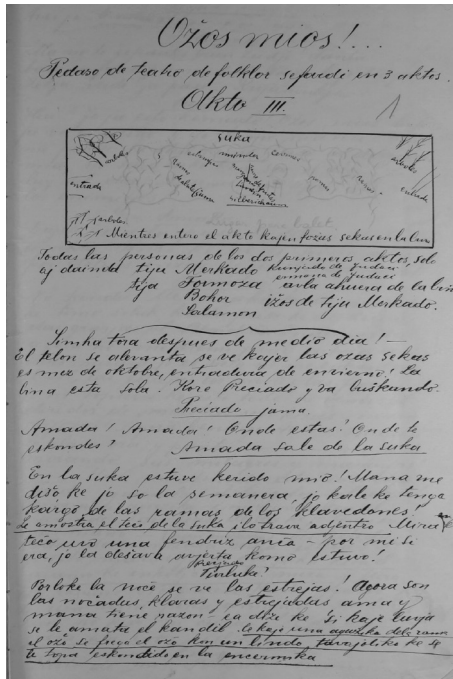 Ožos mios!...
Pedaso de teatro de folklor sefardi en 3 aktos.
Akto III.
1
suka
entrada
entrada
Mientres entero el akto kajen fozas sekas en la bina
Todas las personas de los dos primeros aktos, solo
aj dainda tiju Merkado
tija Formoza avla ahuera de la bina
Bohor ižos de tiju Merkado.
Salamon
Simha tora despues de medio dia! —
El telon se alevanta se ve kajer las ozas sekas
es mez de oktobre, entraduria de envierno! La
bina esta sola. Koro Preciado y va buškando.
Preciado jama.
Amada! Amada! Onde estas? Onde te
eskondes? Amada sale de la suka
En la suka estuve kerido mio! Mana me
dišo, ke jo so la semanera, jo kale ke tenga
kargo de las ramas de los klavedones!
le amostra el tečo de la suka i lo trava adjentro Mira el
tečo uvo una fendriz ania — por mi si
era, jo la dešava avjerta komo estuvo!
Preciado
Finluke?
Porloke la noče se ve las estrejas! Agora son
las nočadas, klaras y estrejiadas ama y
mana tiene razon ea diže ke si kaje luvja
si le amata el kandil. le kajo una
el ožo se frego el ožo kun un lindo, ke se
le topa eskondido en la